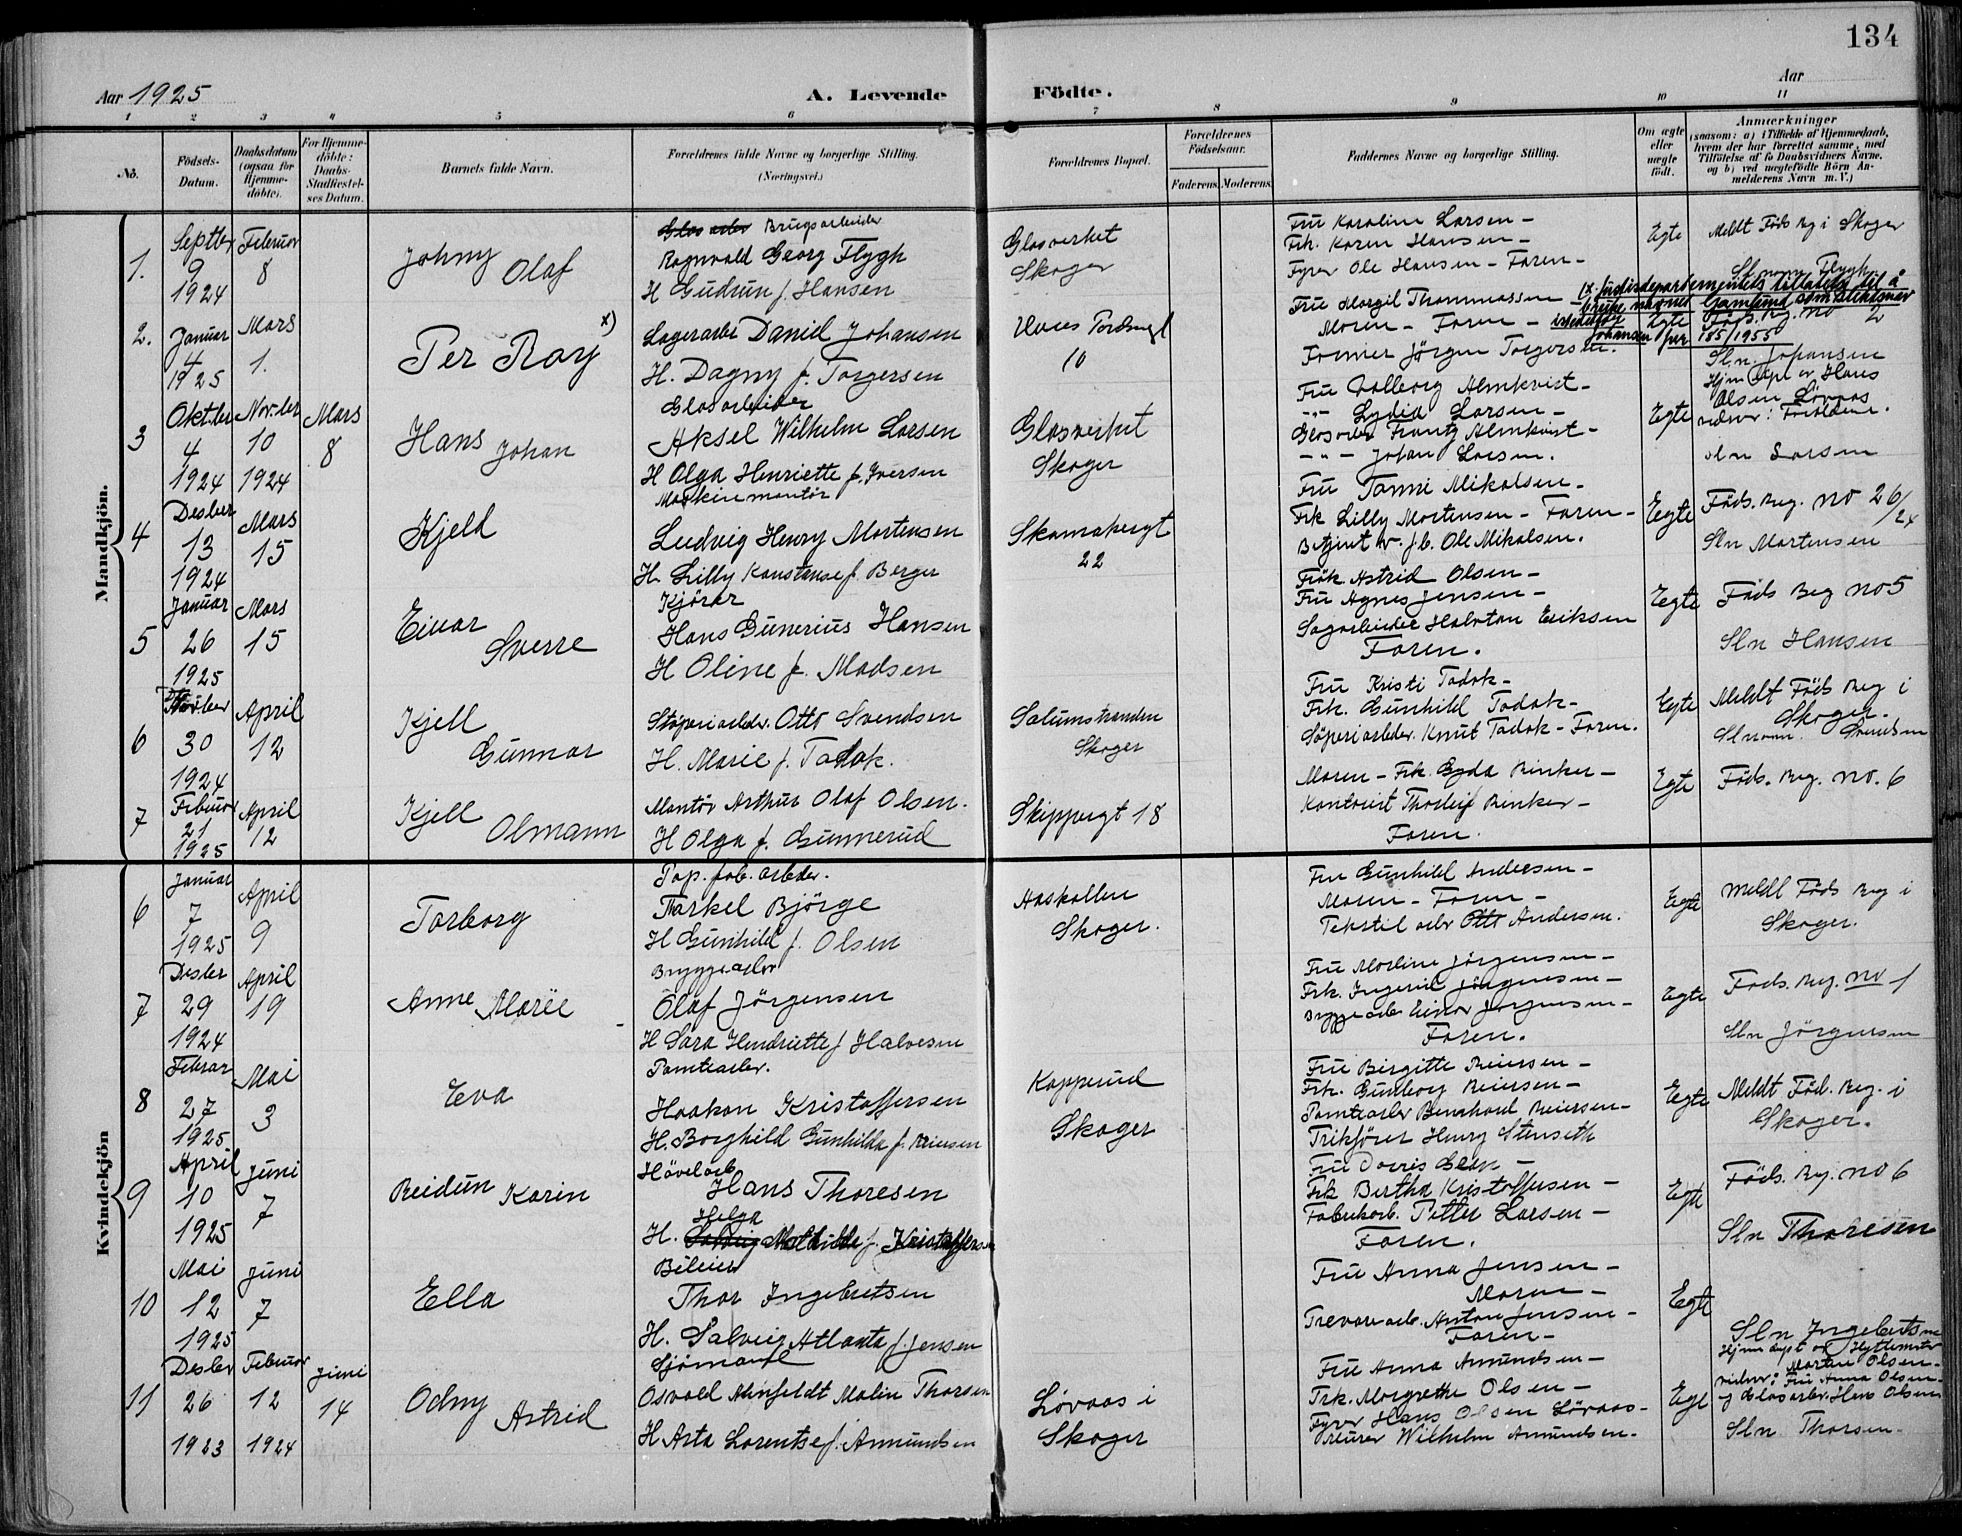 134
Aar 1925
A. Levende Födte.
Aar
1 2 3 4 5 6 7 8 9 10 11
No.
Födsels-Datum.
Daabsdatum (ogsaa for Hjemme-döbte).
For Hjemme-döbte: Daabs-Stadfæstel-ses Datum.
Barnets fulde Navn.
Forældrenes fulde Navne og borgerlige Stilling.
(Næringsvei.)
Forældrenes Bopæl.
Forældrenes Födselsaar.
Faderens. Moderens.
Faddernes Navne og borgerlige Stilling.
Om ægte eller uægte födt.
Anmærkninger
(saasom: a) i Tilfælde af Hjemmedaab,
hvem der har forrettet samme, med
Tilföielse af to Daabsvidners Navne,
og b) ved uægtefödte Börn An-
melderens Navn m. V.)
Mandkjön.
1.
Septbr 9 1924
Februar 8
Johny Olaf
Glasarbr Brugsarbeider
Ragnvald Georg Flygh
H Gudrun f. Hansen
Glasverket
Skoger
Fru Karoline Larsen -
Frk. Karen Hansen -
Fyrer Ole Hansen - Faren -
Egte
Meldt Föds Reg i Skoger
Sl navn Flygh.
2.
Januar 4 1925
Mars 1.
Per Roy x)
Lagerarbr Daniel Johansen
H. Dagny f. Torgersen
10
Fru Margit Thommassen
Moren - Faren -
Former Jörgen Torgersen.
Egte
Föds. Reg. No 2
x. Justisdepartementets tillatelse til å
bruke navnet Gamlund som slektsnavn
istedetfor Johansen
185/1955
Sln. Johansen
3
Oktber 4 1924
Nov.ber 10 1924
Mars 8
Hans Johan
Glasarbeider
Aksel Wilhelm Larsen
H Olga Henriette f. Iversen
Glasverket
Skoger
Fru Valborg Almkvist -
-"- Lydia Larsen -
Glasarbr Frantz Almkvist -
-"- Johan Larsen.
Egte
Hjm döpt av Hans
Olsen Lövaas
vidner: Foreldrene.
Sln Larsen
4
Desber 13 1924
Mars 15
Kjeld
Maskinmontör
Ludvig Henry Mortensen
H. Lilly Konstanse f. Berger
22
Fru Fanni Mikalsen -
Frk Lilly Mortensen - Faren -
Betjent v. f.b. Ole Mikalsen.
Egte
Föds. Reg. No 26/24
Sln Martensen
5
Januar 26 1925
Mars 15
Einar Sverre
Kjörer
Hans Gunerius Hansen
H Oline f. Madsen
Frök Astrid Olsen -
Fru Agnes Jensen -
Sagarbeider Halvtan Eriksen
Faren.
Egte
Föds Reg no 5
Sln Hansen
6
30 1924
April 12
Kjell Gunnar
Stöperiarbdr. Otto Svendsen
H. Marie f. Tadok.
Solumstranden
Skoger
Fru Kristi Tadok -
Frk. Gunhild Tadok -
Stöperiarbdr. Knut Tadok - Faren.
Egte
Meldt Föds Reg i
Skoger.
Slnavn. Svendsen
7
Februar 21 1925
April 12
Kjell Olmann
Montör Arthur Olaf Olsen.
H Olga f. Gunnerud
Skippergt 18
Moren - Frk. Gyda Rinker -
Kontorist Thorleif Rinker -
Faren.
Egte
Föds. Reg. no. 6
Kvindekjön
6
Januar 7 1925
April 9
Torborg
Pap. fab. arbdr.
Tarkel Björge
H Gunhild f. Olsen
Aaskollen
Skoger.
Fru Gunhild Andersen -
Moren - Faren -
Tekstil arbr Otto Andersen.
Egte
Meldt Föds Reg i
Skoger.
7
Desber 29 1924
April 19
Anne Marie
Bryggearbr
Olaf Jörgensen
H Sara Hendriette f Halvesen
Fru Jörgensen -
Frk. Jörgensen -
Bryggearbr Einar Jörgensen -
Faren.
Egte
Föds. Reg. No 1
Sln Jörgensen
8
Februar 27 1925
Mai 3
Eva
Haakon Kristoffersen
H. Borghild Gunhilda f. Reiersen
Kopperud
Skoger
Fru Birgitte Reiersen -
Frk. Gunborg Reiersen -
Bernhard Reiersen -
Henry Stenseth
Egte
Meldt Föd. Reg. i
Skoger.
9
April 10 1925
Juni 7
Reidun Karin
Hövelarb
Hans Thoresen
Helga
H. Solveig Mathilde f. Kristoffersen
Fru Dorris
Frk Bertha Kristoffersen -
Fabrikarb. Petter Larsen -
Faren.
Egte
Föds. Reg. no 6
Sln Thoresen
10
Mai 12 1925
Juni 7
Ella
Bileier
Thor Ingebretsen
H. Solveig Atlanta f. Jensen
Fru Anna Jensen -
Moren -
Trevarearb. Anton Jensen -
Faren -
Egte
Sln Ingebretsen
11
Desber 26 1923
Februar 12 1924
Juni 14
Odny Astrid
Sjömand
Osvald Ahnfeldt Malin Thorsen
H Asta Lorentse f. Amundsen
Lövaas i
Skoger
Fru Anna Amundsen -
Frk. Margrethe Olsen -
Fyrer Hans Olsen Lövaas -
Murer Wilhelm Amundsen.
Egte
Hjem döpt av Hyttemstr
Martin Olsen -
vidner: Fru Anna Olsen
og Glasarbr. Hans Olsen
Sln Thorsen